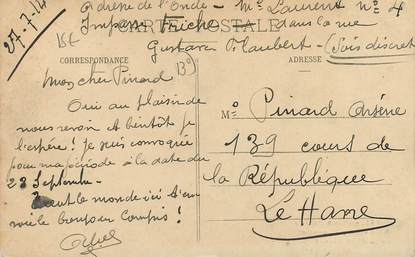 Adresse de l'Onde - Mr Laurent no 4
Impasse Friche dans la rue
CARTE POSTALE
Gustave Flaubert - (Sois discret
27-7-14
CORRESPONDANCE
ADRESSE
Mon cher Pinard
Oui au plaisir de
nous revoir et bientôt je
l'espère! Je suis convoqué
pour ma période à la date du
23 Septembre -
Tout le monde ici t'en-
voie le bonjour Compris!
Mr Pinard Arsène
139 cours de
la République
Le Havre